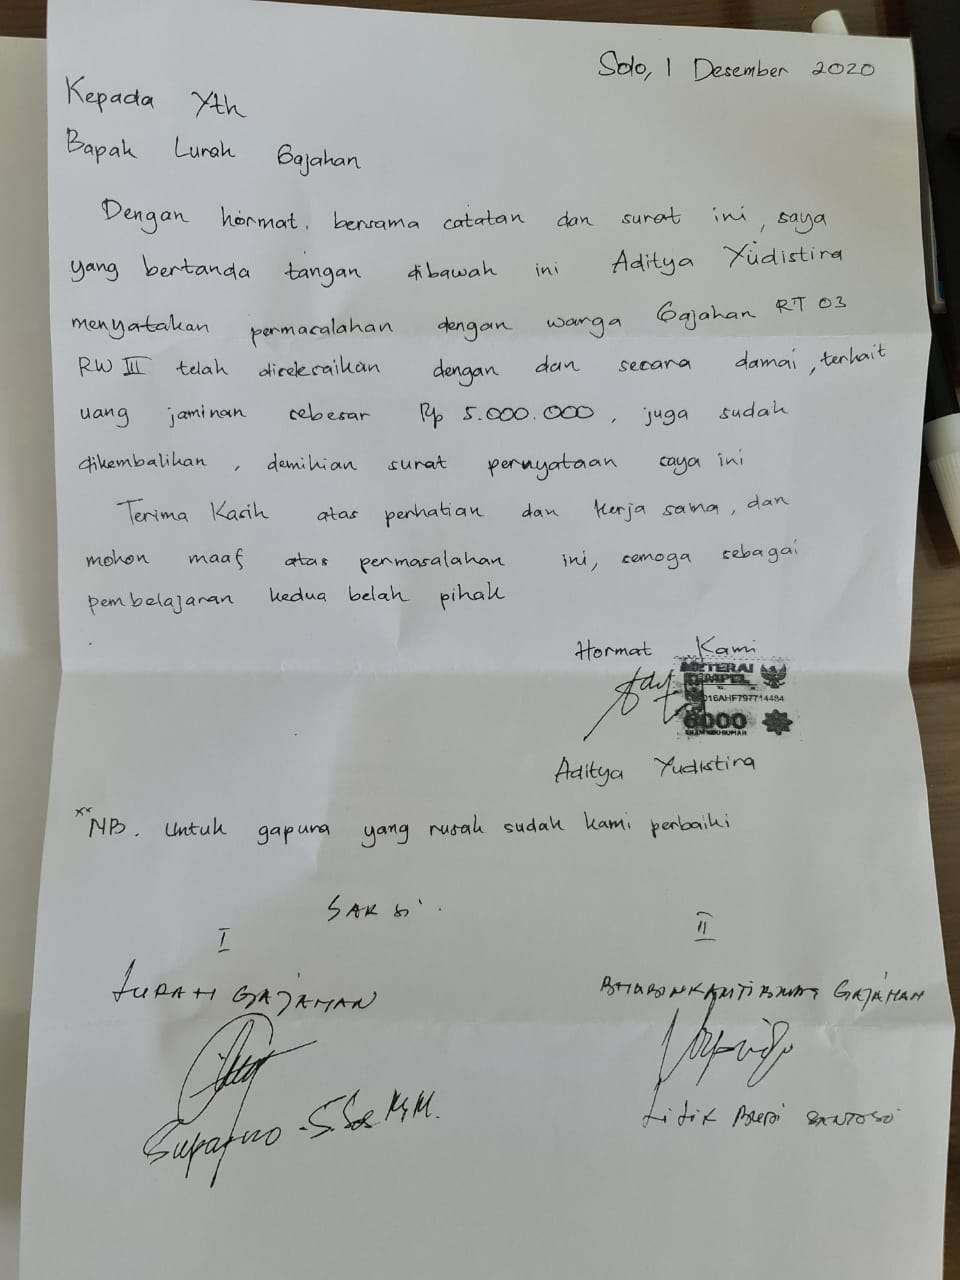 Solo, 1 Desember 2020
Kepada Yth
Bapak Lurah Gajahan
Dengan hormat, bersama catatan dan surat ini, saya
yang bertanda tangan dibawah ini Aditya Yudistira
menyatakan permasalahan dengan warga Gajahan RT 03
RW III telah diselesaikan dengan dan secara damai, terkait
uang jaminan sebesar Rp 5.000.000, juga sudah
dikembalikan, demikian surat pernyataan saya ini
Terima Kasih atas perhatian dan kerja sama, dan
mohon maaf atas permasalahan ini, semoga sebagai
pembelajaran kedua belah pihak
Hormat Kami
METERAI
TEMPEL
016AHF797714484
6000
ENAM RIBU RUPIAH
Aditya Yudistira
**NB. Untuk gapura yang rusak sudah kami perbaiki
SAKSI.
I II
LURAH GAJAHAN BHABINKAMTIBMAS GAJAHAN
Suparno S.Sos M.M. Titik Budi SANTOSO